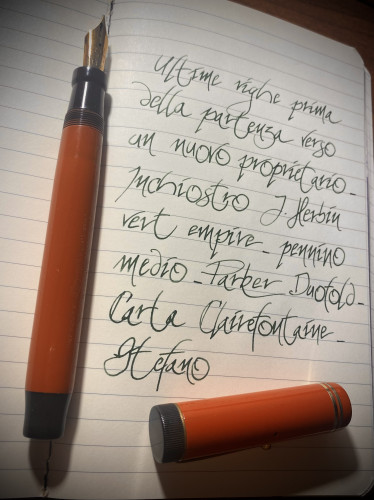 Ultime righe prima
della partenza verso
un nuovo proprietario_
Inchiostro J. Herbin
vert empire_ pennino
medio_Parker Duofold_
Carta Clairefontaine_
Stefano